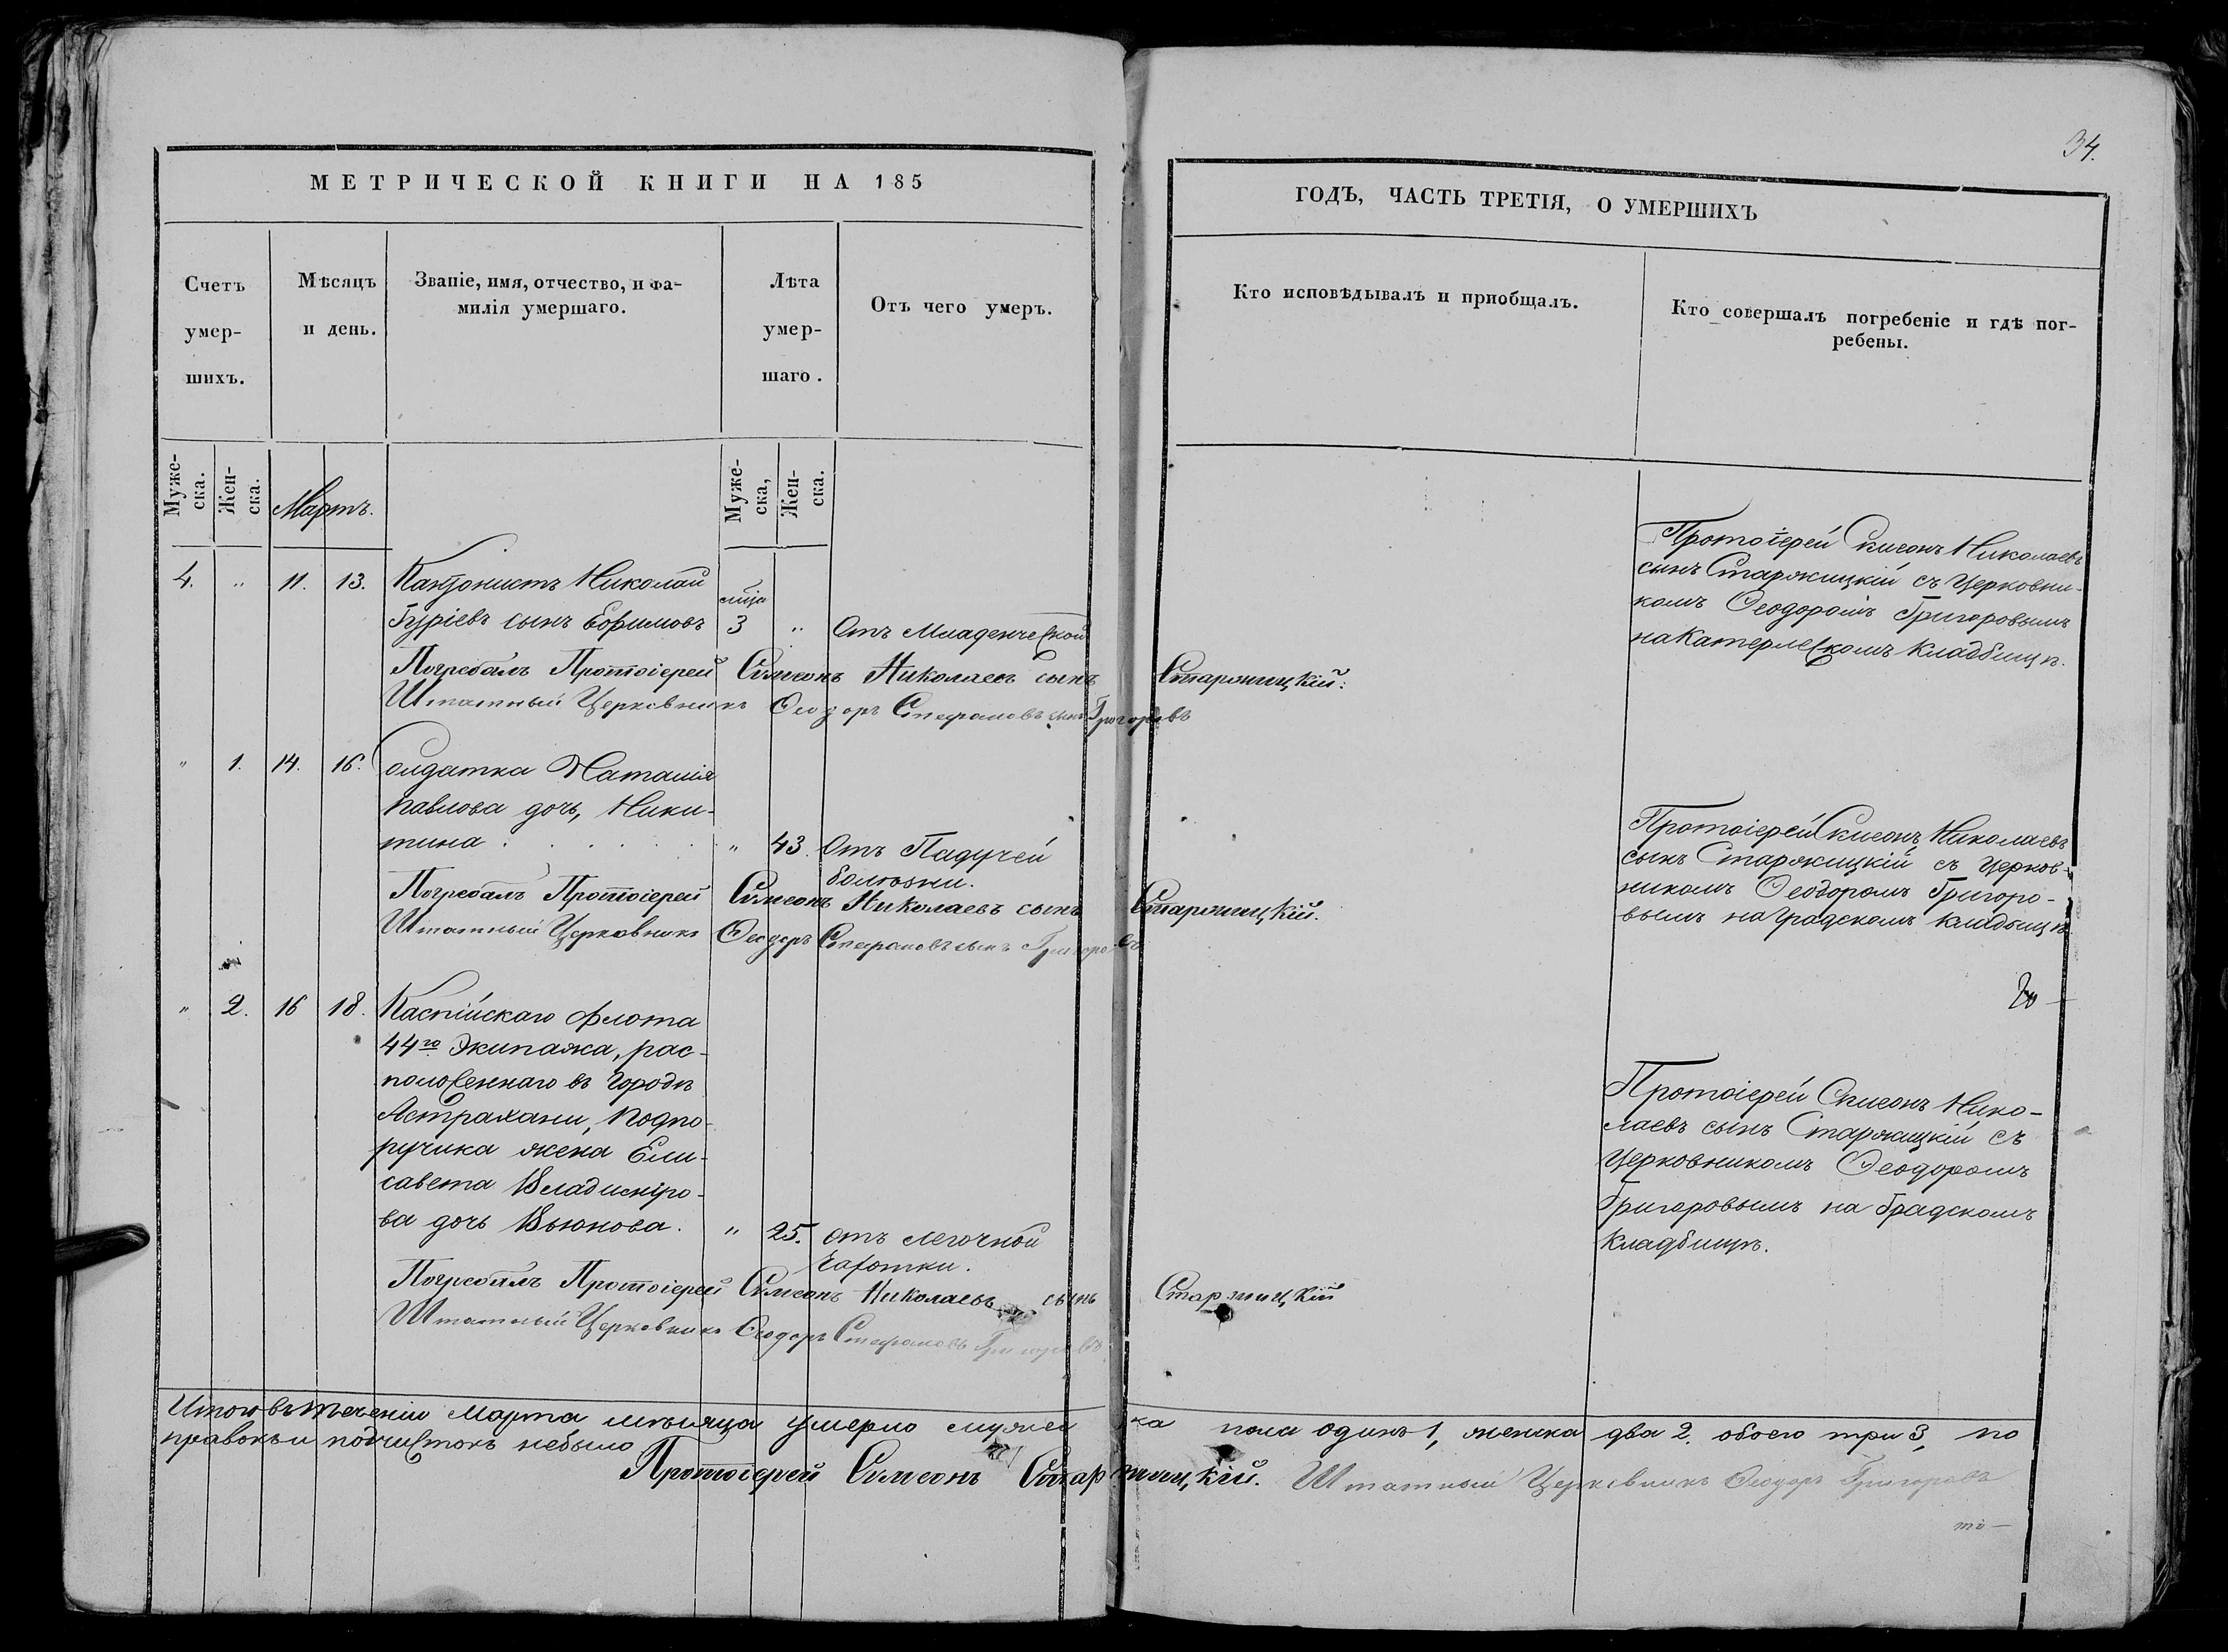 34.
МЕТРИЧЕСКОЙ КНИГИ НА 185
ГОДЪ, ЧАСТЬ ТРЕТІЯ, О УМЕРШИХЪ
Счетъ
умер-
шихъ.
Мѣсяцъ
и день.
Званіе, имя, отчество, и фа-
милія умершаго.
Лѣта
умер-
шаго.
Отъ чего умеръ.
Кто исповѣдывалъ и приобщалъ.
Кто совершалъ погребеніе и гдѣ пог-
ребены.
Муже-
ска.
Жен-
ска.
Мартъ.
Муже-
ска,
Жен-
ска.
4. " 11. 13. Кантонистъ Николай
Гуріевъ сынъ Ефимовъ 3 " Отъ Младенческой
Протоіерей Симеонъ Николаевъ
сынъ Старжицкій съ Церковни-
комъ Ѳеодоромъ Григоровымъ
на Катерлескомъ кладбищѣ.
Погребалъ Протоіерей Симеонъ Николаевъ сынъ Старжицкій.
Штатный Церковникъ Ѳеодоръ Стефановъ сынъ Григоровъ
" 1. 14. 16. Солдатка Наталія
Павлова дочь, Ники-
тина . . . . . " 43. Отъ Падучей
болѣзни.
Протоіерей Симеонъ Николаевъ
сынъ Старжицкій съ Церков-
никомъ Ѳеодоромъ Григоро-
вымъ на Градскомъ кладбищѣ
Погребалъ Протоіерей Симеонъ Николаевъ сынъ Старжицкій.
Штатный Церковникъ Ѳеодоръ Стефановъ сынъ Григоровъ
" 2. 16 18. Каспійскаго флота
44го Экипажа, рас-
положеннаго въ городѣ
Астрахани, Подпо-
ручика жена Ели-
савета Владиміро-
ва дочь Вьюнова. " 25. отъ легочной
чахотки.
Протоіерей Симеонъ Нико-
лаевъ сынъ Старжицкій съ
Церковникомъ Ѳеодоромъ
Григоровымъ на Градскомъ
кладбищѣ.
Погребалъ Протоіерей Симеонъ Николаевъ сынъ Старжицкій
Штатный Церковникъ Ѳеодоръ Стефановъ Григоровъ
Итого въ теченіи Марта мѣсяца умерло мужеска пола одинъ 1, женска два 2. обоего три 3, по
правокъ и подчистокъ небыло
Протоіерей Симеонъ Старжицкій. Штатный Церковникъ Ѳеодоръ Григоровъ